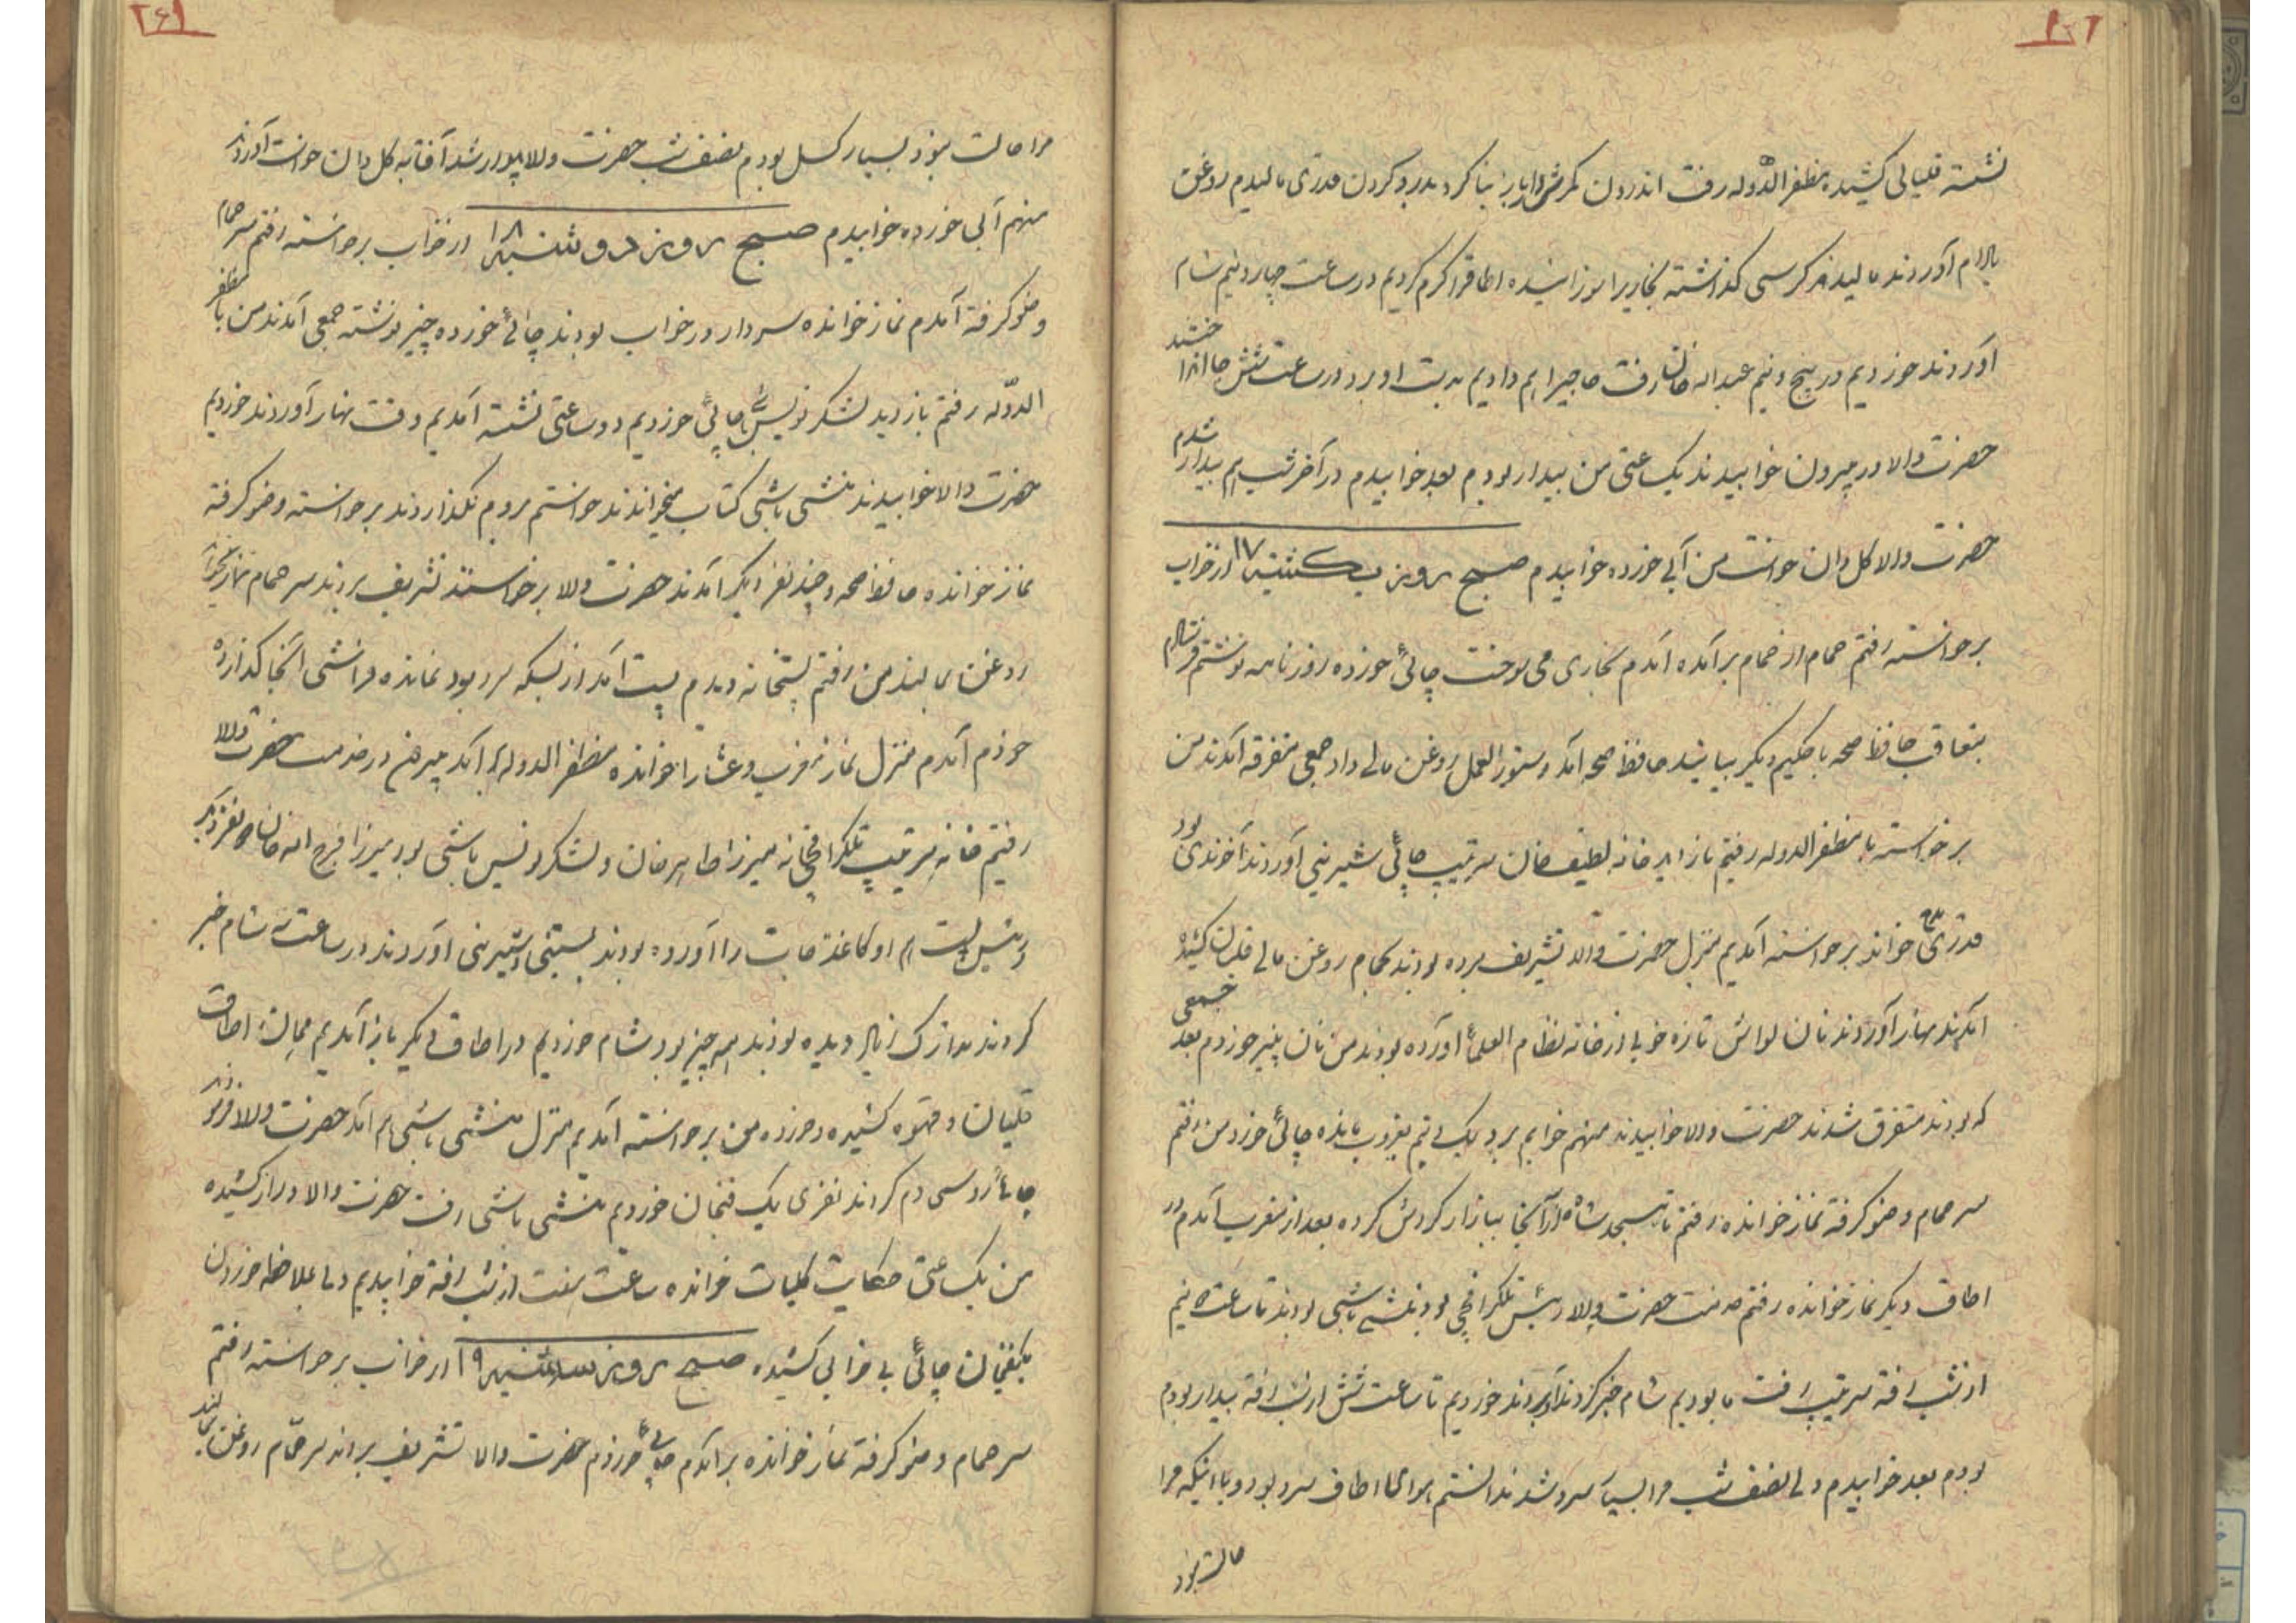 نشسته قلیانی کشیده مظفر الدوله رفت اندرون کمرش را باز بنا کرد بدرد کردن قدری مالیدم روغن
بادام آوردند مالیدند کرسی گذاشته بخاریرا سوزانیده اطاقرا گرم کردیم در ساعت چهار و نیم شام
آوردند خوردیم در پنج و نیم عبداله خان رفت ما جیرا هم دادیم به پست او برد در ساعت شش جا انداختند
حضرت والا در بیرون خوابیدند یک ساعتی من بیدار بودم بعد خوابیدم در آخر شب هم بیدار شدم
حضرت والا گلدان خواست من آبی خورده خوابیدم صبح روز یکشنبه ۱۷ از خواب
برخواسته رفتم حمام از حمام برآمده آمدم بخاری می سوخت چائی خورده روزنامه نوشتم فرستادم
بتعاقب حافظ صحه با حکیم دیگر بیایند حافظ صحه آمد دستورالعمل روغن مالی داد جمعی متفرقه آمدند من
برخواسته با مظفر الدوله رفتم بازدید خانه لطیف خان سرتیپ چائی شیرینی آوردند آخوندی بود
قدری خواند برخواسته آمدیم منزل حضرت والا تشریف برده بودند بحمام روغن مالی قلیان کشیده
آمدند نهار آوردند نان لواش تازه خوبی از خانه نظام العلما آورده بودند من نان پنیر خوردم بعد جمعی
که بودند متفرق شدند حضرت والا خوابیدند منهم خوابم برد یک و نیم بغروب مانده چائی خورد من رفتم
سر حمام وضو گرفته نماز خوانده رفتم تا مسجد شاه از آنجا ببازار گردش کرده بعد از مغرب آمدم در
اطاق دیگر نماز خوانده رفتم خدمت حضرت والا رئیس تلگرافچی بود منشی باشی بودند تا ساعت سه و نیم
از شب رفته سرتیپ رفت ما بودیم شام خبر کردند آوردند خوردیم تا ساعت شش از شب رفته بیدار بودم
بودم بعد خوابیدم ولی نصف شب مرا بسیار سرد شد ندانستم هوا یا اطاق سرد بود و یا اینکه مرا
حالت نبود
۲۶۱
مرا حالت نبود بسیار کسل بودم نصف شب حضرت والا بیدار شد آفتابه گلدان خواست آوردند
منهم آبی خورده خوابیدم صبح روز دوشنبه ۱۸ از خواب برخواسته رفتم سر حمام
وضو گرفته آمدم نماز خوانده سردار در خواب بودند چائی خورده چیز نوشته جمعی آمدند من با مظفر
الدوله رفتم بازدید لشکر نویس باشی چائی خوردیم دو ساعتی نشسته آمدیم وقت نهار آوردند خوردیم
حضرت والا خوابیدند منشی باشی کتاب میخواندند خواستم بروم نگذاردند برخواسته وضو گرفته
نماز خوانده حافظ صحه و چند نفر دیگر آمدند حضرت والا برخواستند تشریف بردند سر حمام نماز بخوانند
روغن بمالند من رفتم پستخانه دیدم پست آمد از بسکه سرد بود نمانده فراشی آنجا گذارده
خودم آمدم منزل نماز مغرب و عشا را خوانده مظفر الدوله هم آمد بیرون در خدمت حضرت والا
رفتیم خانه سرتیپ تلگرافخانه میرزا طاهر خان و لشکر نویس باشی بود میرزا فرج اله خان و نفر دیگر
رئیس پست هم او کاغذ جات را آورده بودند بستنی و شیرینی آوردند در ساعت سه شام خبر
کردند تدارک زیاد دیده بودند همه چیز بود شام خوردیم در اطاق دیگر باز آمدیم همان اطاق
قلیان و قهوه کشیده و خورده من برخواسته آمدیم منزل منشی باشی هم آمد حضرت والا فرمودند
چائی روسی دم کردند نفری یک فنجان خوردیم منشی باشی رفت حضرت والا دراز کشیده
من یک ساعتی حکایت کلیات خوانده ساعت هفت از شب رفته خوابیدیم و بملاحظه خوردن
یکفنجان چائی بی خوابی کشیده صبح روز سه شنبه ۱۹ از خواب برخواسته رفتم
سر حمام وضو گرفته نماز خوانده برآمدم چائی خوردم حضرت والا تشریف بردند سر حمام روغن بمالند